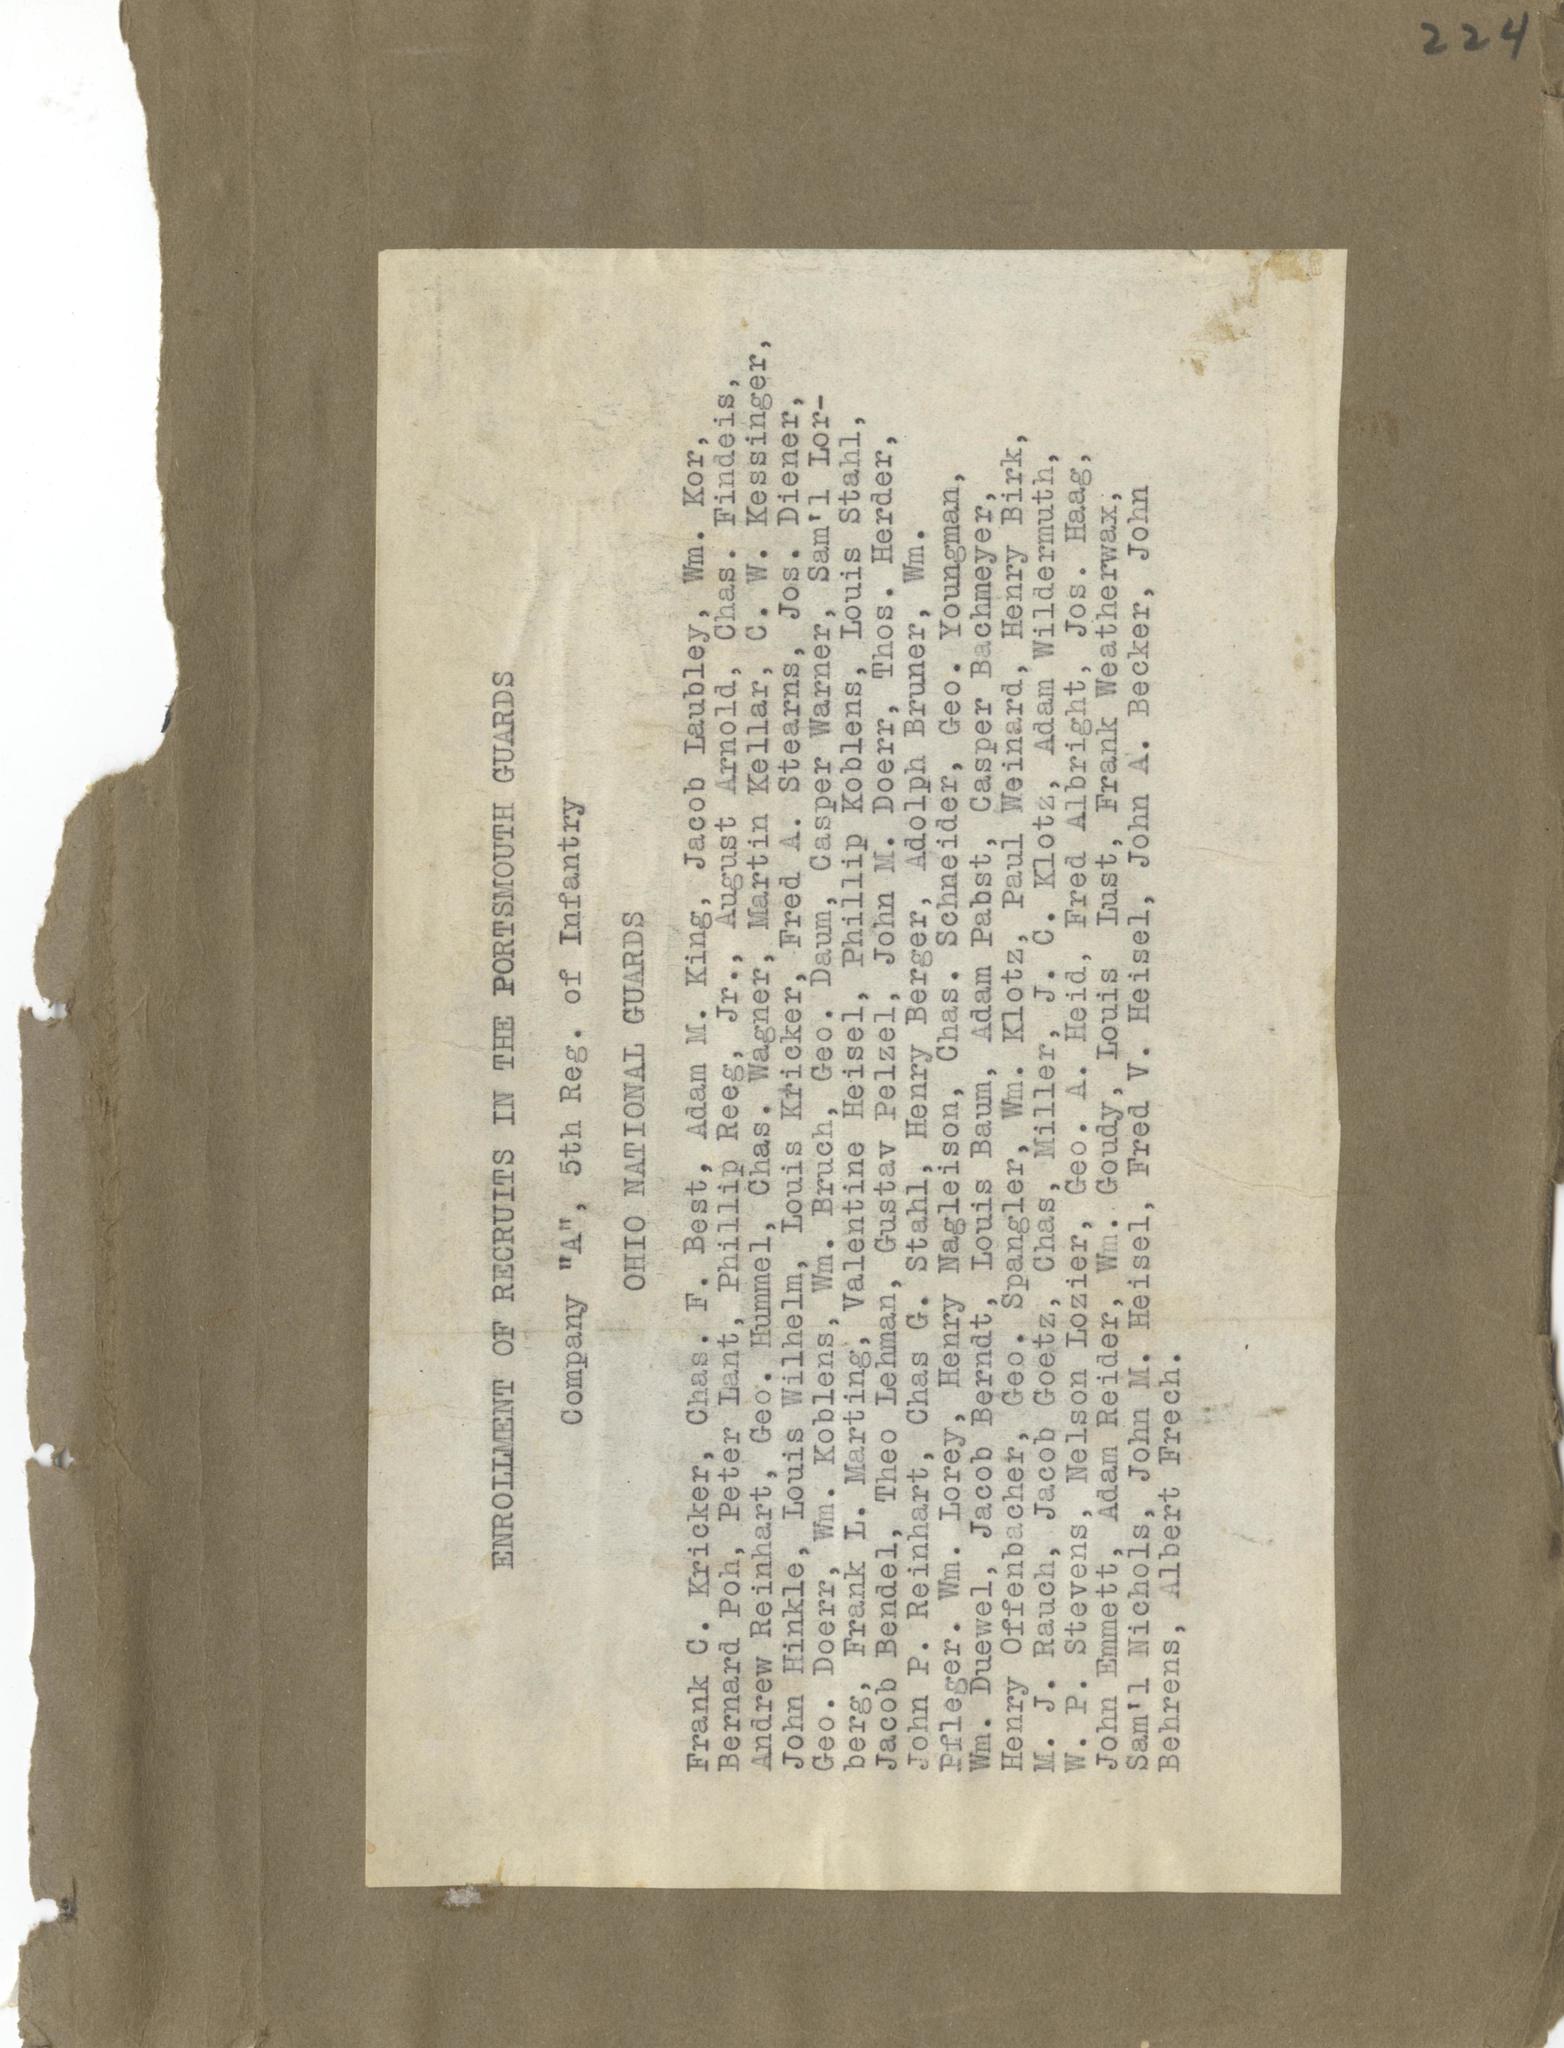 224
ENROLLMENT OF RECRUITS IN THE PORTSMOUTH GUARDS
Company "A", 5th Reg. of Infantry
OHIO NATIONAL GUARDS
Frank C. Kricker, Chas. F. Best, Adam M. King, Jacob Laubley, Wm. Kor,
Bernard Poh, Peter Lant, Phillip Reeg, Jr., August Arnold, Chas. Findeis,
Andrew Reinhart, Geo. Hummel, Chas. Wagner, Martin Kellar, C. W. Kessinger,
John Hinkle, Louis Wilhelm, Louis Kricker, Fred A. Stearns, Jos. Diener,
Geo. Doerr, Wm. Koblens, Wm. Bruch, Geo. Daum, Casper Warner, Sam'l Lor-
berg, Frank L. Marting, Valentine Heisel, Phillip Koblens, Louis Stahl,
Jacob Bendel, Theo Lehman, Gustav Pelzel, John M. Doerr, Thos. Herder,
John P. Reinhart, Chas G. Stahl, Henry Berger, Adolph Bruner, Wm.
Pfleger. Wm. Lorey, Henry Nagleison, Chas. Schneider, Geo. Youngman,
Wm. Duewel, Jacob Berndt, Louis Baum, Adam Pabst, Casper Bachmeyer,
Henry Offenbacher, Geo. Spangler, Wm. Klotz, Paul Weinard, Henry Birk,
M. J. Rauch, Jacob Goetz, Chas, Miller, J. C. Klotz, Adam Wildermuth,
W. P. Stevens, Nelson Lozier, Geo. A. Heid, Fred Albright, Jos. Haag,
John Emmett, Adam Reider, Wm. Goudy, Louis Lust, Frank Weatherwax,
Sam'l Nichols, John M. Heisel, Fred V. Heisel, John A. Becker, John
Behrens, Albert Frech.